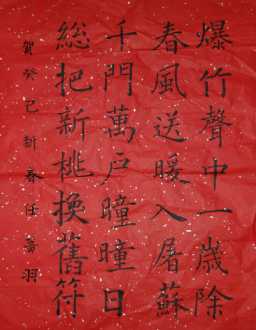 爆竹聲中一歲除
春風送暖入屠蘇
千門萬戶曈曈日
總把新桃換舊符
賀癸巳新春任菁羽